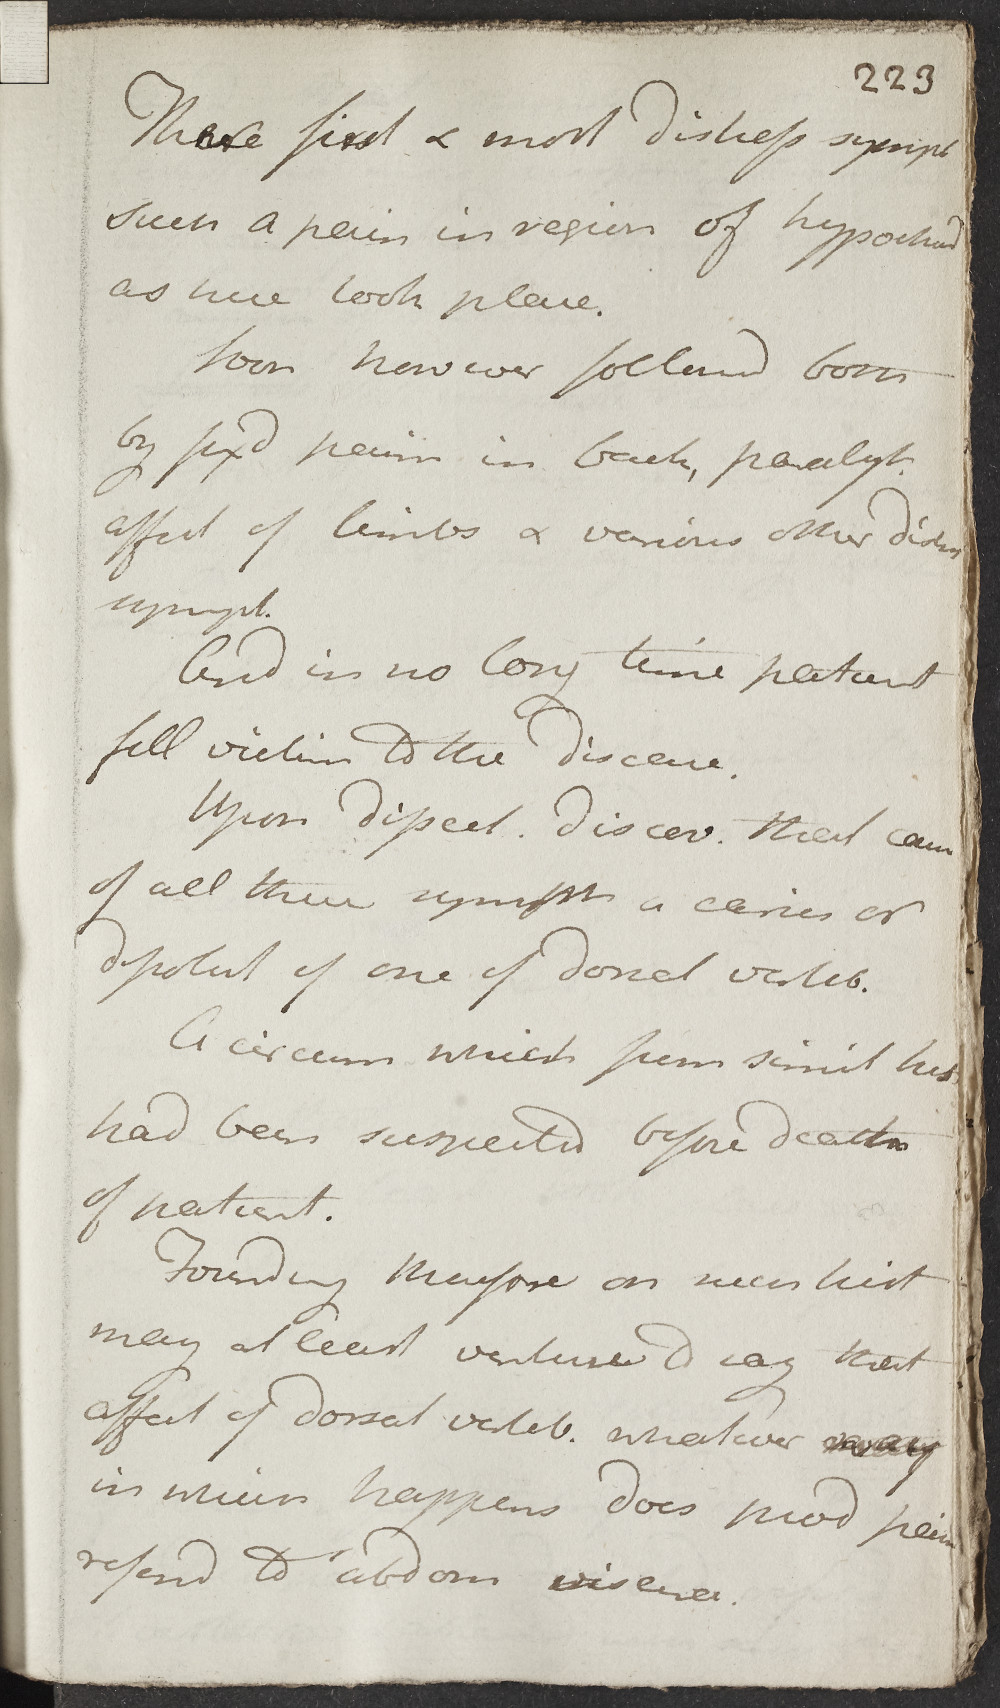 223
There first & most distress sympt
such a pain in region of hypochond
as here took place.
Soon however followd both
by fixd pain in back, paralyt.
affect of limbs & various other distress
sympt.
And in no long time patient
fell victim to the disease.
Upon dissect. discov. that cause
of all these sympt a caries or
of one of dorsal verteb.
A circum which from simil hist
had been suspected before death
of patient.
Founding therefore on such hist
may at least venture to say that
affect of dorsal verteb. whatever way
in which happens does prod pain
referd to abdom viscera.